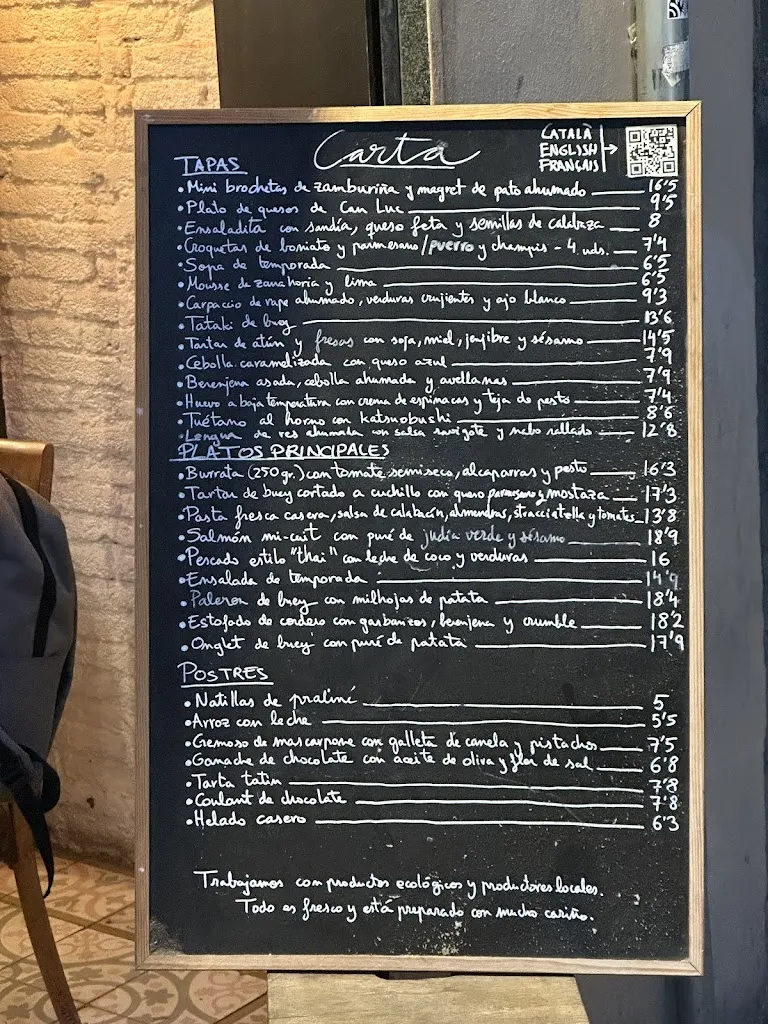 Carta
CATALÀ
ENGLISH
FRANÇAIS
TAPAS
• Mini brochetas de zamburiña y magret de pato ahumado 16'5
• Plato de quesos de Can Luc 9'5
• Ensaladita con sandía, queso feta y semillas de calabaza 8
• Croquetas de boniato y parmesano/puerro y champis - 4 uds. 7'4
• Sopa de temporada 6'5
• Mousse de zanahoria y lima 6'5
• Carpaccio de rape ahumado, verduras crujientes y ajo blanco 9'3
• Tataki de buey 13'6
• Tartar de atún y fresas con soja, miel, jenjibre y sésamo 14'5
• Cebolla caramelizada con queso azul 7'9
• Berenjena asada, cebolla ahumada y avellanas 7'9
• Huevo a baja temperatura con crema de espinacas y teja de pesto 7'4
• Tuétano al horno con katsuobushi 8'6
• Lengua de res ahumada con salsa ravigote y nabo rallado 12'8
PLATOS PRINCIPALES
• Burrata (250 gr.) con tomate semiseco, alcaparras y pesto 16'3
• Tartar de buey cortado a cuchillo con queso parmesano y mostaza 17'3
• Pasta fresca casera, salsa de calabacín, almendras, stracciatella y tomates 13'8
• Salmón mi-cuit con puré de judia verde y sésamo 18'9
• Pescado estilo "thai" con leche de coco y verduras 16
• Ensalada de temporada 14'9
• Paleron de buey con milhojas de patata 18'4
• Estofado de cordero con garbanzos, berenjena y crumble 18'2
• Onglet de buey con puré de patata 17'9
POSTRES
• Natillas de praliné 5
• Arroz con leche 5'5
• Cremoso de mascarpone con galleta de canela y pistachos 7'5
• Ganache de chocolate con aceite de oliva y flor de sal 6'8
• Tarta tatin 7'8
• Coulant de chocolate 7'8
• Helado casero 6'3
Trabajamos con productos ecológicos y productores locales.
Todo es fresco y está preparado con mucho cariño.